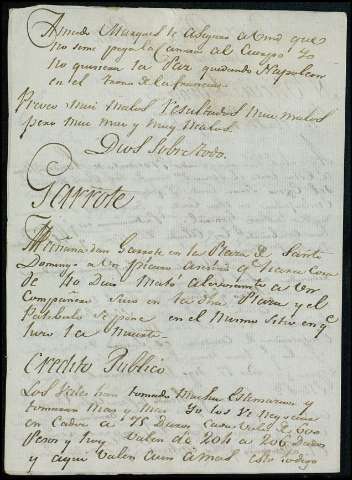 Amado Marques le aseguro a Vmd que
no seme pega la Camisa al Cuerpo Yo
no quisiera la Paz quedando Napoleon
en el trono de la francia
Preveo Mui Malos resultados Mui Malos
pero Mui Mui y Muy Malos.
Dios Sobre todo.
Garrote
Mañana dan Garrote en la Plaza de Santo
Domingo a Un picaro que hara Cosa
de 40 Dias Mató alevosamente a Un
Compañero Suio en la dha Plaza y el
Patibulo se pone en el Mismo Sitio en q.e
hizo la Muerte
Credito Publico
Los Vales han tomado Mucha Estimacion y
tomaran Mas y Mas Yo los he
en Cadiz a 75 Duros Cada Vale de 600
Pesos y hoy Valen de 204 a 206 Duros
y aqui Valen aun a Mas esto